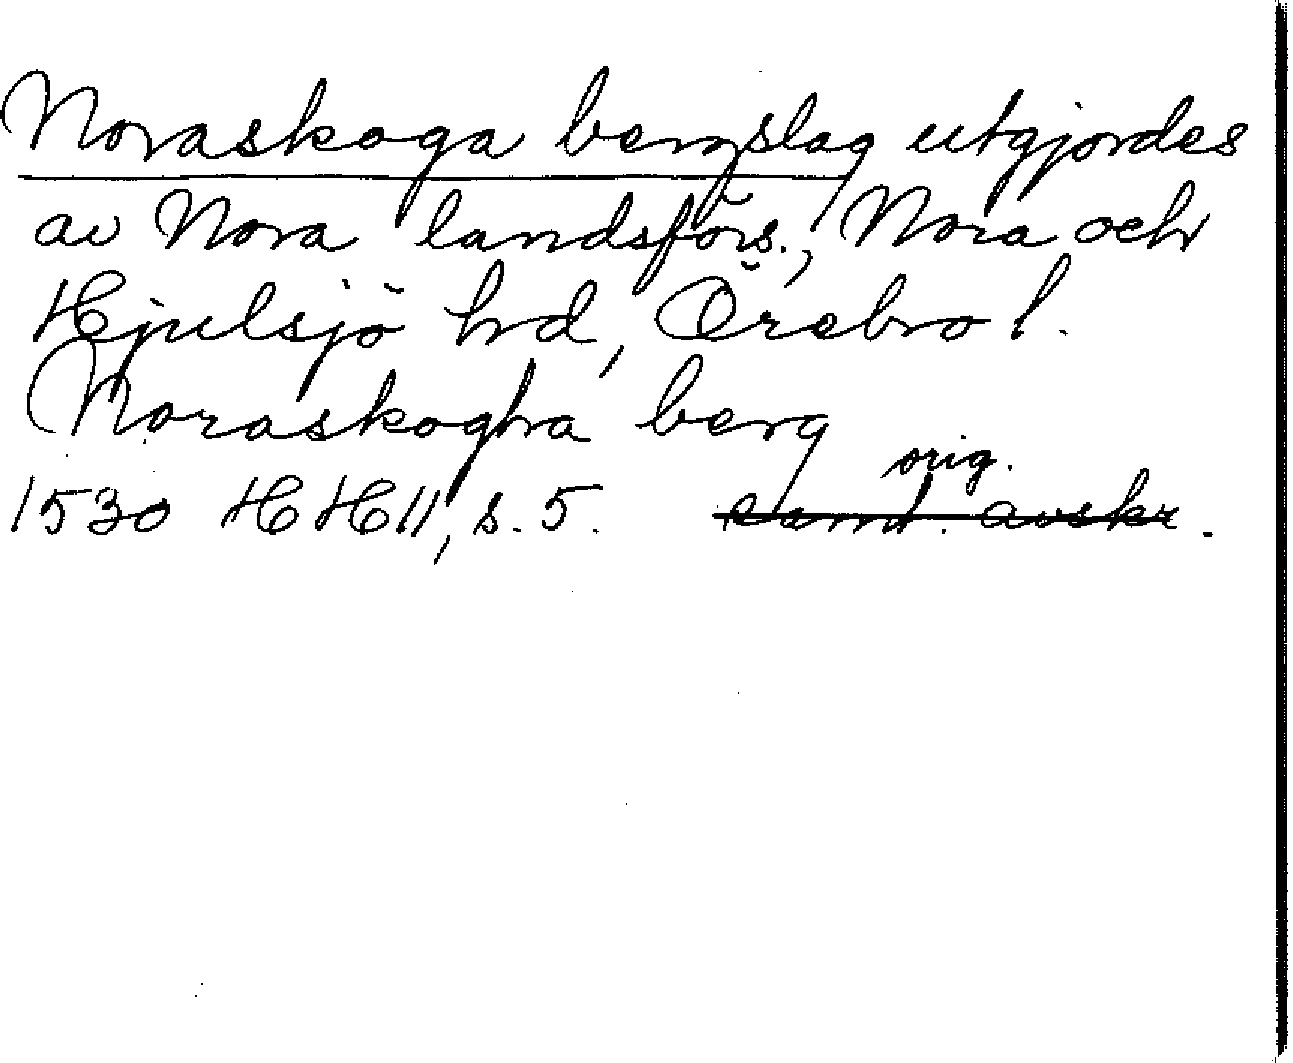 Noraskoga bergslag utgjordes
av Nora landsförs., Nora och
Hjulsjö hd, Örebro l.
Noraskogha berg
orig.
1530 HH11, s. 5. samt. avskr.